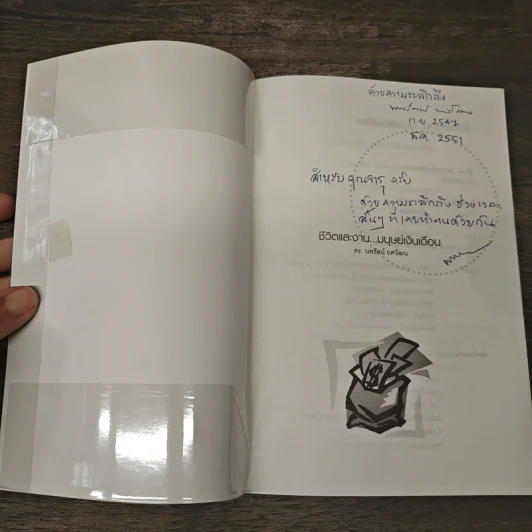 ด้วยความระลึกถึง
ก.ย 2547
ธค. 2551
สำหรับ คุณจารุ ครับ
ด้วยความระลึกถึง ช่วงเวลา
สั้นๆ ที่เคยทำงานด้วยกัน
ชีวิตและงาน...มนุษย์เงินเดือน
ดร. นพรัตน์ ยศวัฒน